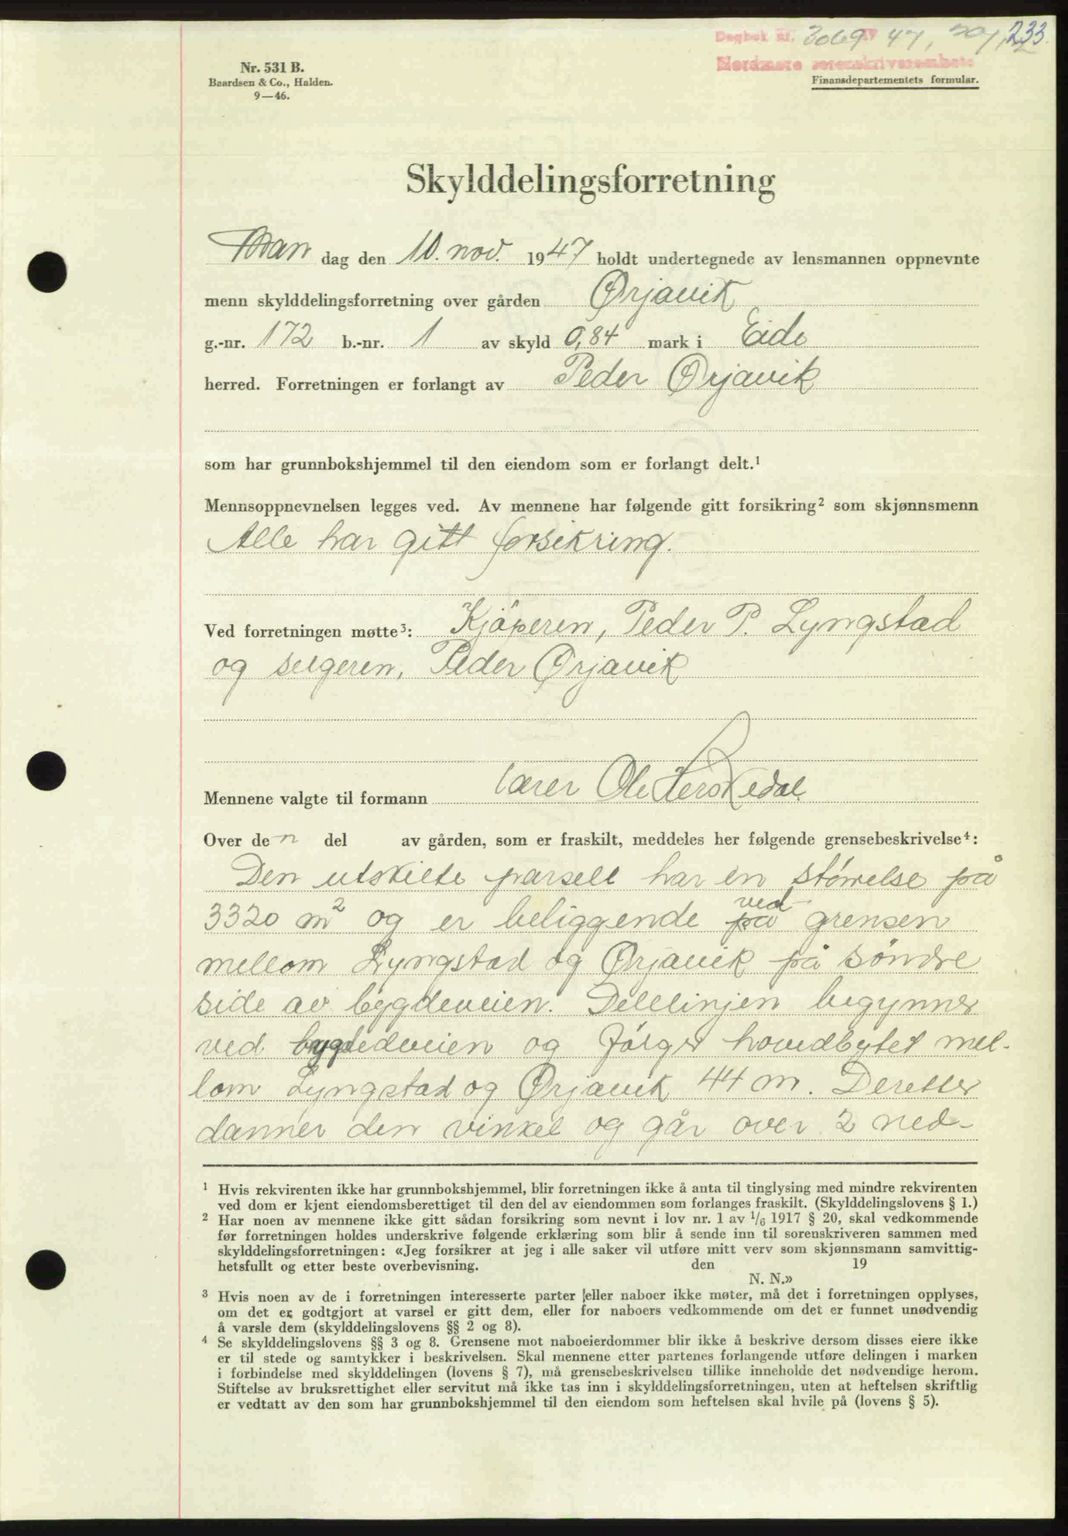 Dagbok nr. 3069 47, 233
Nordmøre sorenskriverembete
Nr. 531 B.
Baardsen & Co., Halden.
9—46.
Finansdepartementets formular.
Skylddelingsforretning
Man dag den 10. nov. 1947 holdt undertegnede av lensmannen oppnevnte
menn skylddelingsforretning over gården Ørjavik
g.-nr. 172 b.-nr. 1 av skyld 0,84 mark i Eide
herred. Forretningen er forlangt av Peder Ørjavik
som har grunnbokshjemmel til den eiendom som er forlangt delt.¹
Mennsoppnevnelsen legges ved. Av mennene har følgende gitt forsikring² som skjønnsmenn
Alle har gitt forsikring.
Ved forretningen møtte³: Kjöperen, Peder P. Lyngstad
og selgeren, Peder Ørjavik
Mennene valgte til formann lærer Ole Herskedal
Over den del av gården, som er fraskilt, meddeles her følgende grensebeskrivelse⁴:
Den utskilte parsell har en störrelse på
3320 m² og er beliggende på ved grensen
mellom Lyngstad og Ørjavik på söndre
side av bygdeveien. Delelinjen begynner
ved bygdedveien og fölger hovedbytet mel-
lom Lyngstad og Ørjavik 44 m. Deretter
danner den vinkel og går over 2 ned-
¹ Hvis rekvirenten ikke har grunnbokshjemmel, blir forretningen ikke å anta til tinglysing med mindre rekvirenten
ved dom er kjent eiendomsberettiget til den del av eiendommen som forlanges fraskilt. (Skylddelingslovens § 1.)
² Har noen av mennene ikke gitt sådan forsikring som nevnt i lov nr. 1 av 1/6 1917 § 20, skal vedkommende
før forretningen holdes underskrive følgende erklæring som blir å sende inn til sorenskriveren sammen med
skylddelingsforretningen: «Jeg forsikrer at jeg i alle saker vil utføre mitt verv som skjønnsmann samvittig-
hetsfullt og etter beste overbevisning. den 19
N. N.»
³ Hvis noen av de i forretningen interesserte parter eller naboer ikke møter, må det i forretningen opplyses,
om det er godtgjort at varsel er gitt dem, eller for naboers vedkommende om det er funnet unødvendig
å varsle dem (skylddelingslovens §§ 2 og 8).
⁴ Se skylddelingslovens §§ 3 og 8. Grensene mot naboeierdommer blir ikke å beskrive dersom disses eiere ikke
er til stede og samtykker i beskrivelsen. Skal mennene etter partenes forlangende utføre delingen i marken
i forbindelse med skylddelingen (lovens § 7), må grensebeskrivelsen tillike inneholde det nødvendige herom.
Stiftelse av bruksrettighet eller servitut må ikke tas inn i skylddelingsforretningen, uten at heftelsen skriftlig
er vedtatt av den som har grunnbokshjemmel til den eiendom som heftelsen skal hvile på (lovens § 5).